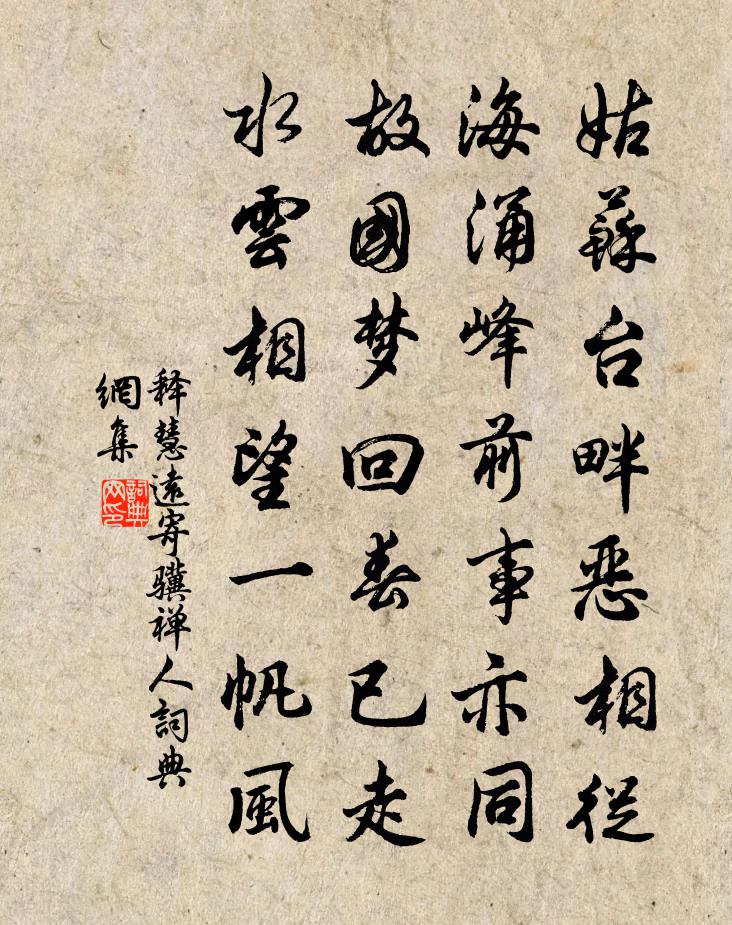 姑蘇台畔惡相從
海涌峰前事亦同
故國梦回春已走
水雲相望一帆風
释慧遠寄骥禅人詞典
網集
詞典
网印